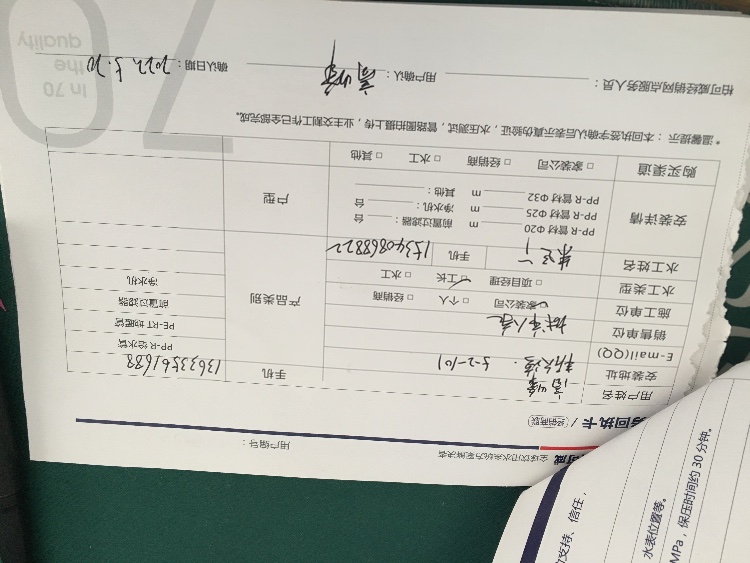 全球饮用水系统方案解决者
用户编号：
务回执卡 / 经销商联
用户姓名 高峰 手机 13633561688
安装地址 5-2-101
E-mail(QQ)
销售单位
施工单位 家装公司 □ 个人 □ 经销商
水工类型 □ 项目经理 □ 工长 □ 水工
水工姓名 手机 15340868822
产品类别
PP-R 给水管
PE-RT 地暖管
前置过滤器
净水机
安装详情
PP-R 管材 Φ20 m 前置过滤器： 台
PP-R 管材 Φ25 m 净水机： 台
PP-R 管材 Φ32 m 其他：
户型
购买渠道 □ 家装公司 □ 经销商 □ 水工 □ 其他
* 温馨提示：本回执签字确认后表示真伪验证，水压测试，管路图拍摄上传，业主交割工作已全部完成。
柏可威经销网点服务人员： 用户确认：高峰 确认日期：2022.5.20
70
In 70
the
quality
支持、信任，
水表位置等。
MPa，保压时间约 30 分钟。